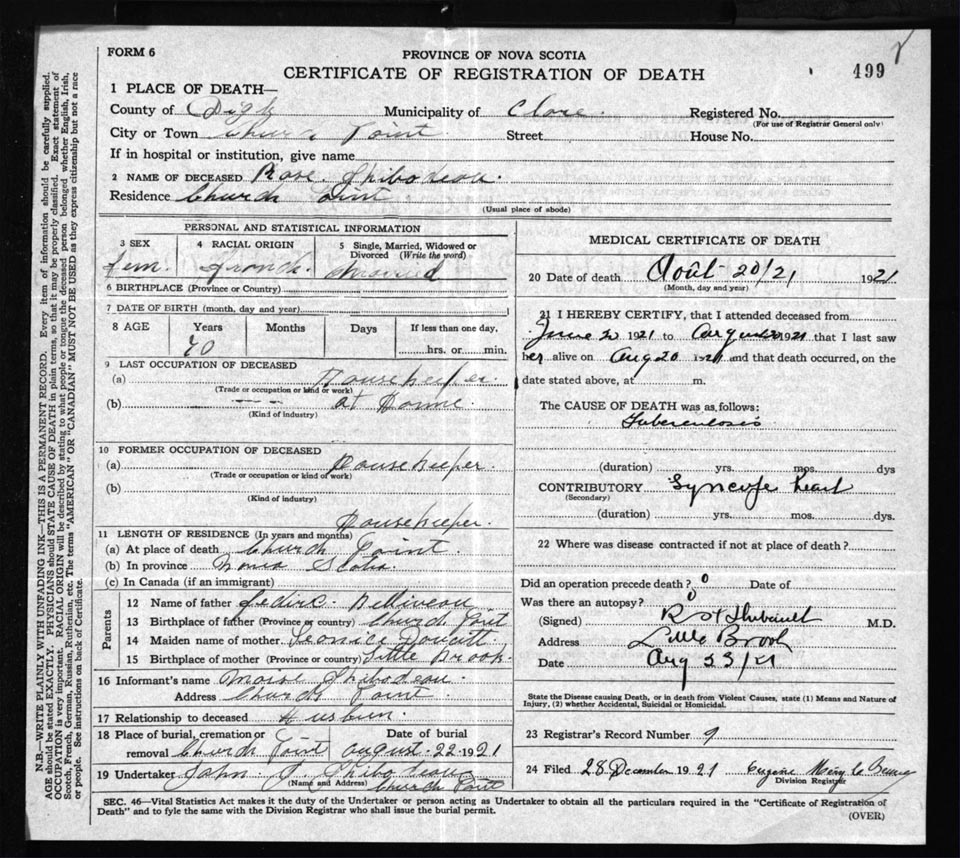 FORM 6
PROVINCE OF NOVA SCOTIA
CERTIFICATE OF REGISTRATION OF DEATH
499
1 PLACE OF DEATH—
County of Digby Municipality of Clare Registered No.
(For use of Registrar General only)
City or Town Church Point Street House No.
If in hospital or institution, give name
2 NAME OF DECEASED Rose Thibodeau.
Residence Church Point.
(Usual place of abode)
PERSONAL AND STATISTICAL INFORMATION
3 SEX 4 RACIAL ORIGIN 5 Single, Married, Widowed or Divorced (Write the word)
fem. french. married
6 BIRTHPLACE (Province or Country)
7 DATE OF BIRTH (month, day and year)
8 AGE Years Months Days If less than one day,
70 hrs. or min.
9 LAST OCCUPATION OF DECEASED
(a) Housekeeper
(Trade or occupation or kind of work)
(b) at Home.
(Kind of industry)
10 FORMER OCCUPATION OF DECEASED
(a) Housekeeper.
(Trade or occupation or kind of work)
(b)
(Kind of industry)
Housekeeper.
11 LENGTH OF RESIDENCE (In years and months)
(a) At place of death Church Point.
(b) In province Nova Scotia.
(c) In Canada (if an immigrant)
Parents
12 Name of father Belliveau
13 Birthplace of father (Province or country) Church Point
14 Maiden name of mother Doucett
15 Birthplace of mother (Province or country) Little Brook.
16 Informant's name Moise Thibodeau.
Address Church Point.
17 Relationship to deceased Husben.
18 Place of burial, cremation or removal Church Point Date of burial August. 22 1921
19 Undertaker John J. Thibodeau
(Name and Address) Church Point
MEDICAL CERTIFICATE OF DEATH
20 Date of death Août 20/21 1921
(Month, day and year)
21 I HEREBY CERTIFY, that I attended deceased from
June 2 1921 to 1921 that I last saw
her alive on Aug 20 1921 and that death occurred, on the
date stated above, at m.
The CAUSE OF DEATH was as follows:
Tuberculosis
(duration) yrs. mos. dys
CONTRIBUTORY Syncope heart
(Secondary)
(duration) yrs. mos. dys.
22 Where was disease contracted if not at place of death?
Did an operation precede death? 0 Date of
Was there an autopsy? 0
(Signed) M.D.
Address Little Brook
Date Aug 23/21
State the Disease causing Death, or in death from Violent Causes, state (1) Means and Nature of
Injury, (2) whether Accidental, Suicidal or Homicidal.
23 Registrar's Record Number 9
24 Filed 28 December 1921 Eugene
Division Registrar
SEC. 46—Vital Statistics Act makes it the duty of the Undertaker or person acting as Undertaker to obtain all the particulars required in the "Certificate of Registration of
Death" and to fyle the same with the Division Registrar who shall issue the burial permit.
(OVER)
N.B.—WRITE PLAINLY WITH UNFADING INK—THIS IS A PERMANENT RECORD. Every item of information should be carefully supplied.
AGE should be stated EXACTLY. PHYSICIANS should STATE CAUSE OF DEATH in plain terms, so that it may be properly classified. Exact statement of
OCCUPATION is very important. RACIAL ORIGIN will be described by stating to what people or tongue the deceased person belonged whether English, Irish,
Scotch, French, German, Russian, Ruthenian, etc. The terms "AMERICAN" OR "CANADIAN" MUST NOT BE USED as they express citizenship but not a race
or people. See instructions on back of Certificate.